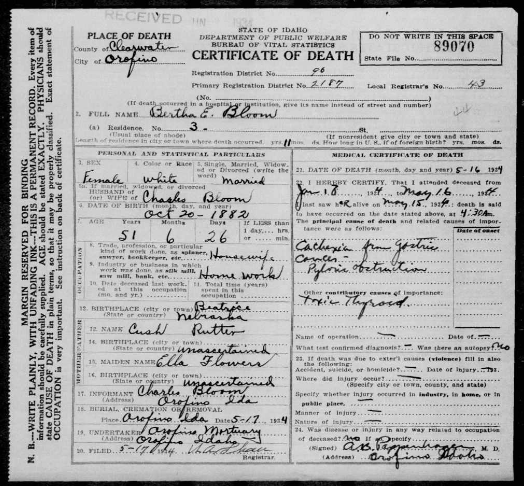 RECEIVED
PLACE OF DEATH
County of Clearwater
City of Orofino
STATE OF IDAHO
DEPARTMENT OF PUBLIC WELFARE
BUREAU OF VITAL STATISTICS
CERTIFICATE OF DEATH
DO NOT WRITE IN THIS SPACE
89070
State File No.
Registration District No. 96
Primary Registration District No. 2187
Local Registrar's No. 43
(No.
(If death occurred in a hospital or institution, give its name instead of street and number)
2. FULL NAME Bertha E. Bloom
(a) Residence. No. 3 - St.
(Usual place of abode) (If nonresident give city or town and state)
Length of residence in city or town where death occurred yrs. 11 mos. ds. How long in U. S., if of foreign birth? yrs. mos. ds.
PERSONAL AND STATISTICAL PARTICULARS
3. SEX Female
4. Color or Race White
5. Single, Married, Widowed, or Divorced (write the word) Married
5a. If married, widowed, or divorced
HUSBAND of
(or) WIFE of Charles Bloom
6. DATE OF BIRTH Oct 20 - 1882
7. AGE Years 51 Months 6 Days 26 If LESS than
1 day, hrs.
or min.
OCCUPATION
8. Trade, profession, or particular
kind of work done, as spinner,
sawyer, bookkeeper, etc. Housewife
9. Industry or business in which
work was done, as silk mill,
saw mill, bank, etc. Home work
10. Date deceased last worked at this occupation (mo. and yr.)
11. Total time (years) spent in this occupation
12. BIRTHPLACE (city or town) Beatrice
(State or country) Nebraska
13. NAME Cush Rutter
14. BIRTHPLACE (city or town)
(State or country) unascertained
15. MAIDEN NAME Ella Flowers
16. BIRTHPLACE (city or town)
(State or country) unascertained
17. INFORMANT Charles Bloom
(Address) Orofino Ida
18. BURIAL, CREMATION OR REMOVAL
Place Orofino Ida Date 5-17 1934
19. UNDERTAKER Orofino Mortuary
(Address) Orofino Idaho
20. FILED 5-17 1934
Registrar.
MEDICAL CERTIFICATE OF DEATH
21. DATE OF DEATH (month, day and year) 5-16 1934
22. I HEREBY CERTIFY, That I attended deceased from
Jan. 18 1934 to May 16 1934
I last saw her alive on May 15, 1934, death is said
to have occurred on the date stated above, at 4:30 A.m.
The principal cause of death and related causes of importance
were as follows:
Date of onset
Cachexia from gastric
cancer -
Pyloric obstruction
Other contributory causes of importance:
Toxic Thyroid.
Name of operation — Date of —
What test confirmed diagnosis? — Was there an autopsy? no
23. If death was due to external causes (violence) fill in also
the following:
Accident, suicide, or homicide? — Date of injury — 193
Where did injury occur? —
(Specify city or town, county, and state)
Specify whether injury occurred in industry, in home, or in
public place. —
Manner of injury —
Nature of injury —
24. Was disease or injury in any way related to occupation
of deceased? no If so, Specify
(Signed) M. D.
(Address) Orofino Idaho
MARGIN RESERVED FOR BINDING
N. B.—WRITE PLAINLY, WITH UNFADING INK.—THIS IS A PERMANENT RECORD. Every item of
information should be carefully supplied. AGE should be stated EXACTLY. PHYSICIANS should
state CAUSE OF DEATH in plain terms, so that it may be properly classified. Exact statement of
OCCUPATION is very important. See instruction on back of certificate.